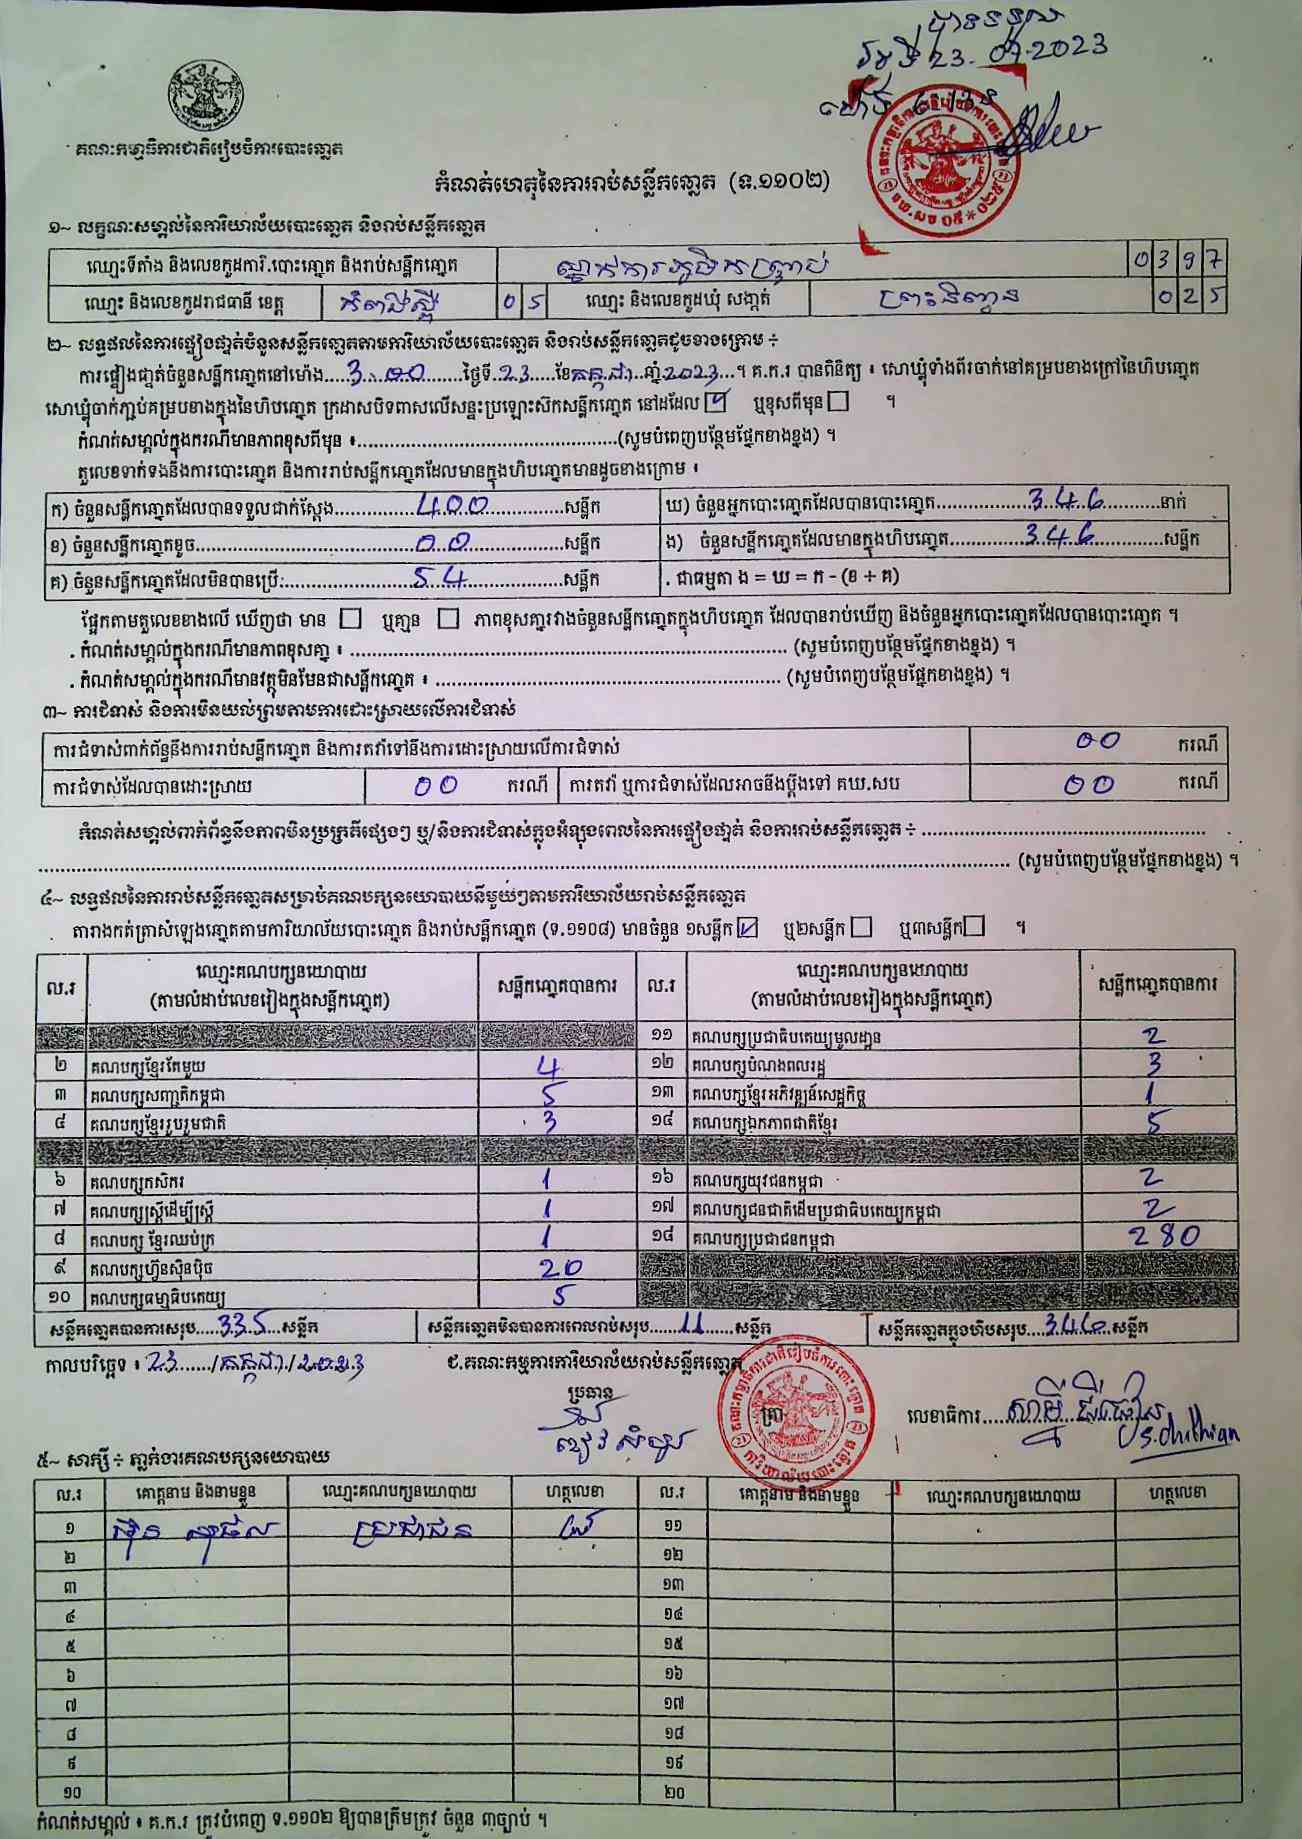 បានទទួល
ថ្ងៃទី 23.07.2023
ម៉ោង
គណៈកម្មាធិការជាតិរៀបចំការបោះឆ្នោត
កំណត់ហេតុនៃការរាប់សន្លឹកឆ្នោត (ទ.១១០២)
១~ លក្ខណៈសម្គាល់នៃការិយាល័យបោះឆ្នោត និងរាប់សន្លឹកឆ្នោត
ឈ្មោះទីតាំង និងលេខកូដការិ.បោះឆ្នោត និងរាប់សន្លឹកឆ្នោត 0397
ឈ្មោះ និងលេខកូដរាជធានី ខេត្ត កំពង់ស្ពឺ 05 ឈ្មោះ និងលេខកូដឃុំ សង្កាត់ ព្រះនិព្វាន 025
២~ លទ្ធផលនៃការផ្ទៀងផ្ទាត់ចំនួនសន្លឹកឆ្នោតតាមការិយាល័យបោះឆ្នោត និងរាប់សន្លឹកឆ្នោតដូចខាងក្រោម ÷
ការផ្ទៀងផ្ទាត់ចំនួនសន្លឹកឆ្នោតនៅម៉ោង 3:00 ថ្ងៃទី 23 ខែ កក្កដា ឆ្នាំ 2023 ។ គ.ក.រ បានពិនិត្យ ៖ សោឃ្លុំទាំងពីរចាក់នៅគម្របខាងក្រៅនៃហិបឆ្នោត
សោឃ្លុំចាក់ភ្ជាប់គម្របខាងក្នុងនៃហិបឆ្នោត ក្រដាសបិទពាសលើសន្ទះប្រឡោះស៊កសន្លឹកឆ្នោត នៅដដែល ☑ ឬខុសពីមុន ☐ ។
កំណត់សម្គាល់ក្នុងករណីមានភាពខុសពីមុន ៖ (សូមបំពេញបន្ថែមផ្នែកខាងខ្នង) ។
តួលេខទាក់ទងនឹងការបោះឆ្នោត និងការរាប់សន្លឹកឆ្នោតដែលមានក្នុងហិបឆ្នោតមានដូចខាងក្រោម ៖
ក) ចំនួនសន្លឹកឆ្នោតដែលបានទទួលជាក់ស្តែង 400 សន្លឹក ឃ) ចំនួនអ្នកបោះឆ្នោតដែលបានបោះឆ្នោត 346 នាក់
ខ) ចំនួនសន្លឹកឆ្នោតខូច 00 សន្លឹក ង) ចំនួនសន្លឹកឆ្នោតដែលមានក្នុងហិបឆ្នោត 346 សន្លឹក
គ) ចំនួនសន្លឹកឆ្នោតដែលមិនបានប្រើ: 54 សន្លឹក . ជាធម្មតា ង = ឃ = ក - (ខ + គ)
ផ្អែកតាមតួលេខខាងលើ ឃើញថា មាន ☐ ឬគ្មាន ☐ ភាពខុសគ្នារវាងចំនួនសន្លឹកឆ្នោតក្នុងហិបឆ្នោត ដែលបានរាប់ឃើញ និងចំនួនអ្នកបោះឆ្នោតដែលបានបោះឆ្នោត ។
. កំណត់សម្គាល់ក្នុងករណីមានភាពខុសគ្នា ៖ (សូមបំពេញបន្ថែមផ្នែកខាងខ្នង) ។
. កំណត់សម្គាល់ក្នុងករណីមានវត្ថុមិនមែនជាសន្លឹកឆ្នោត ៖ (សូមបំពេញបន្ថែមផ្នែកខាងខ្នង) ។
៣~ ការជំទាស់ និងការមិនយល់ព្រមតាមការដោះស្រាយលើការជំទាស់
ការជំទាស់ពាក់ព័ន្ធនឹងការរាប់សន្លឹកឆ្នោត និងការតវ៉ាទៅនឹងការដោះស្រាយលើការជំទាស់ 00 ករណី
ការជំទាស់ដែលបានដោះស្រាយ 00 ករណី ការតវ៉ា ឬការជំទាស់ដែលអាចនឹងប្តឹងទៅ គឃ.សប 00 ករណី
កំណត់សម្គាល់ពាក់ព័ន្ធនឹងភាពមិនប្រក្រតីផ្សេងៗ ឬ/និងការជំទាស់ក្នុងអំឡុងពេលនៃការផ្ទៀងផ្ទាត់ និងការរាប់សន្លឹកឆ្នោត ÷
(សូមបំពេញបន្ថែមផ្នែកខាងខ្នង) ។
៤~ លទ្ធផលនៃការរាប់សន្លឹកឆ្នោតសម្រាប់គណបក្សនយោបាយនីមួយៗតាមការិយាល័យរាប់សន្លឹកឆ្នោត
តារាងកត់ត្រាសំឡេងឆ្នោតតាមការិយាល័យបោះឆ្នោត និងរាប់សន្លឹកឆ្នោត (ទ.១១០៨) មានចំនួន ១សន្លឹក ☑ ឬ២សន្លឹក ☐ ឬ៣សន្លឹក ☐ ។
ល.រ ឈ្មោះគណបក្សនយោបាយ (តាមលំដាប់លេខរៀងក្នុងសន្លឹកឆ្នោត) សន្លឹកឆ្នោតបានការ ល.រ ឈ្មោះគណបក្សនយោបាយ (តាមលំដាប់លេខរៀងក្នុងសន្លឹកឆ្នោត) សន្លឹកឆ្នោតបានការ
១១ គណបក្សប្រជាធិបតេយ្យមូលដ្ឋាន 2
២ គណបក្សខ្មែរតែមួយ 4 ១២ គណបក្សបំណងពលរដ្ឋ 3
៣ គណបក្សសញ្ជាតិកម្ពុជា 5 ១៣ គណបក្សខ្មែរអភិវឌ្ឍន៍សេដ្ឋកិច្ច 1
៤ គណបក្សខ្មែររួបរួមជាតិ 3 ១៤ គណបក្សឯកភាពជាតិខ្មែរ 5
៦ គណបក្សកសិករ 1 ១៦ គណបក្សយុវជនកម្ពុជា 2
៧ គណបក្សស្ត្រីដើម្បីស្ត្រី 1 ១៧ គណបក្សជនជាតិដើមប្រជាធិបតេយ្យកម្ពុជា 2
៨ គណបក្ស ខ្មែរឈប់ក្រ 1 ១៨ គណបក្សប្រជាជនកម្ពុជា 280
៩ គណបក្សហ៊្វុនស៊ិនប៉ិច 20
១០ គណបក្សធម្មាធិបតេយ្យ 5
សន្លឹកឆ្នោតបានការសរុប 335 សន្លឹក សន្លឹកឆ្នោតមិនបានការពេលរាប់សរុប 11 សន្លឹក សន្លឹកឆ្នោតក្នុងហិបសរុប 346 សន្លឹក
កាលបរិច្ឆេទ ៖ 23 / កក្កដា / 2023 ជ.គណៈកម្មការការិយាល័យរាប់សន្លឹកឆ្នោត
ប្រធាន ត្រា លេខាធិការ
៥~ សាក្សី ÷ ភ្នាក់ងារគណបក្សនយោបាយ
ល.រ គោត្តនាម និងនាមខ្លួន ឈ្មោះគណបក្សនយោបាយ ហត្ថលេខា ល.រ គោត្តនាម និងនាមខ្លួន ឈ្មោះគណបក្សនយោបាយ ហត្ថលេខា
១ ប្រជាជន ១១
២ ១២
៣ ១៣
៤ ១៤
៥ ១៥
៦ ១៦
៧ ១៧
៨ ១៨
៩ ១៩
១០ ២០
កំណត់សម្គាល់ ៖ គ.ក.រ ត្រូវបំពេញ ទ.១១០២ ឱ្យបានត្រឹមត្រូវ ចំនួន ៣ច្បាប់ ។